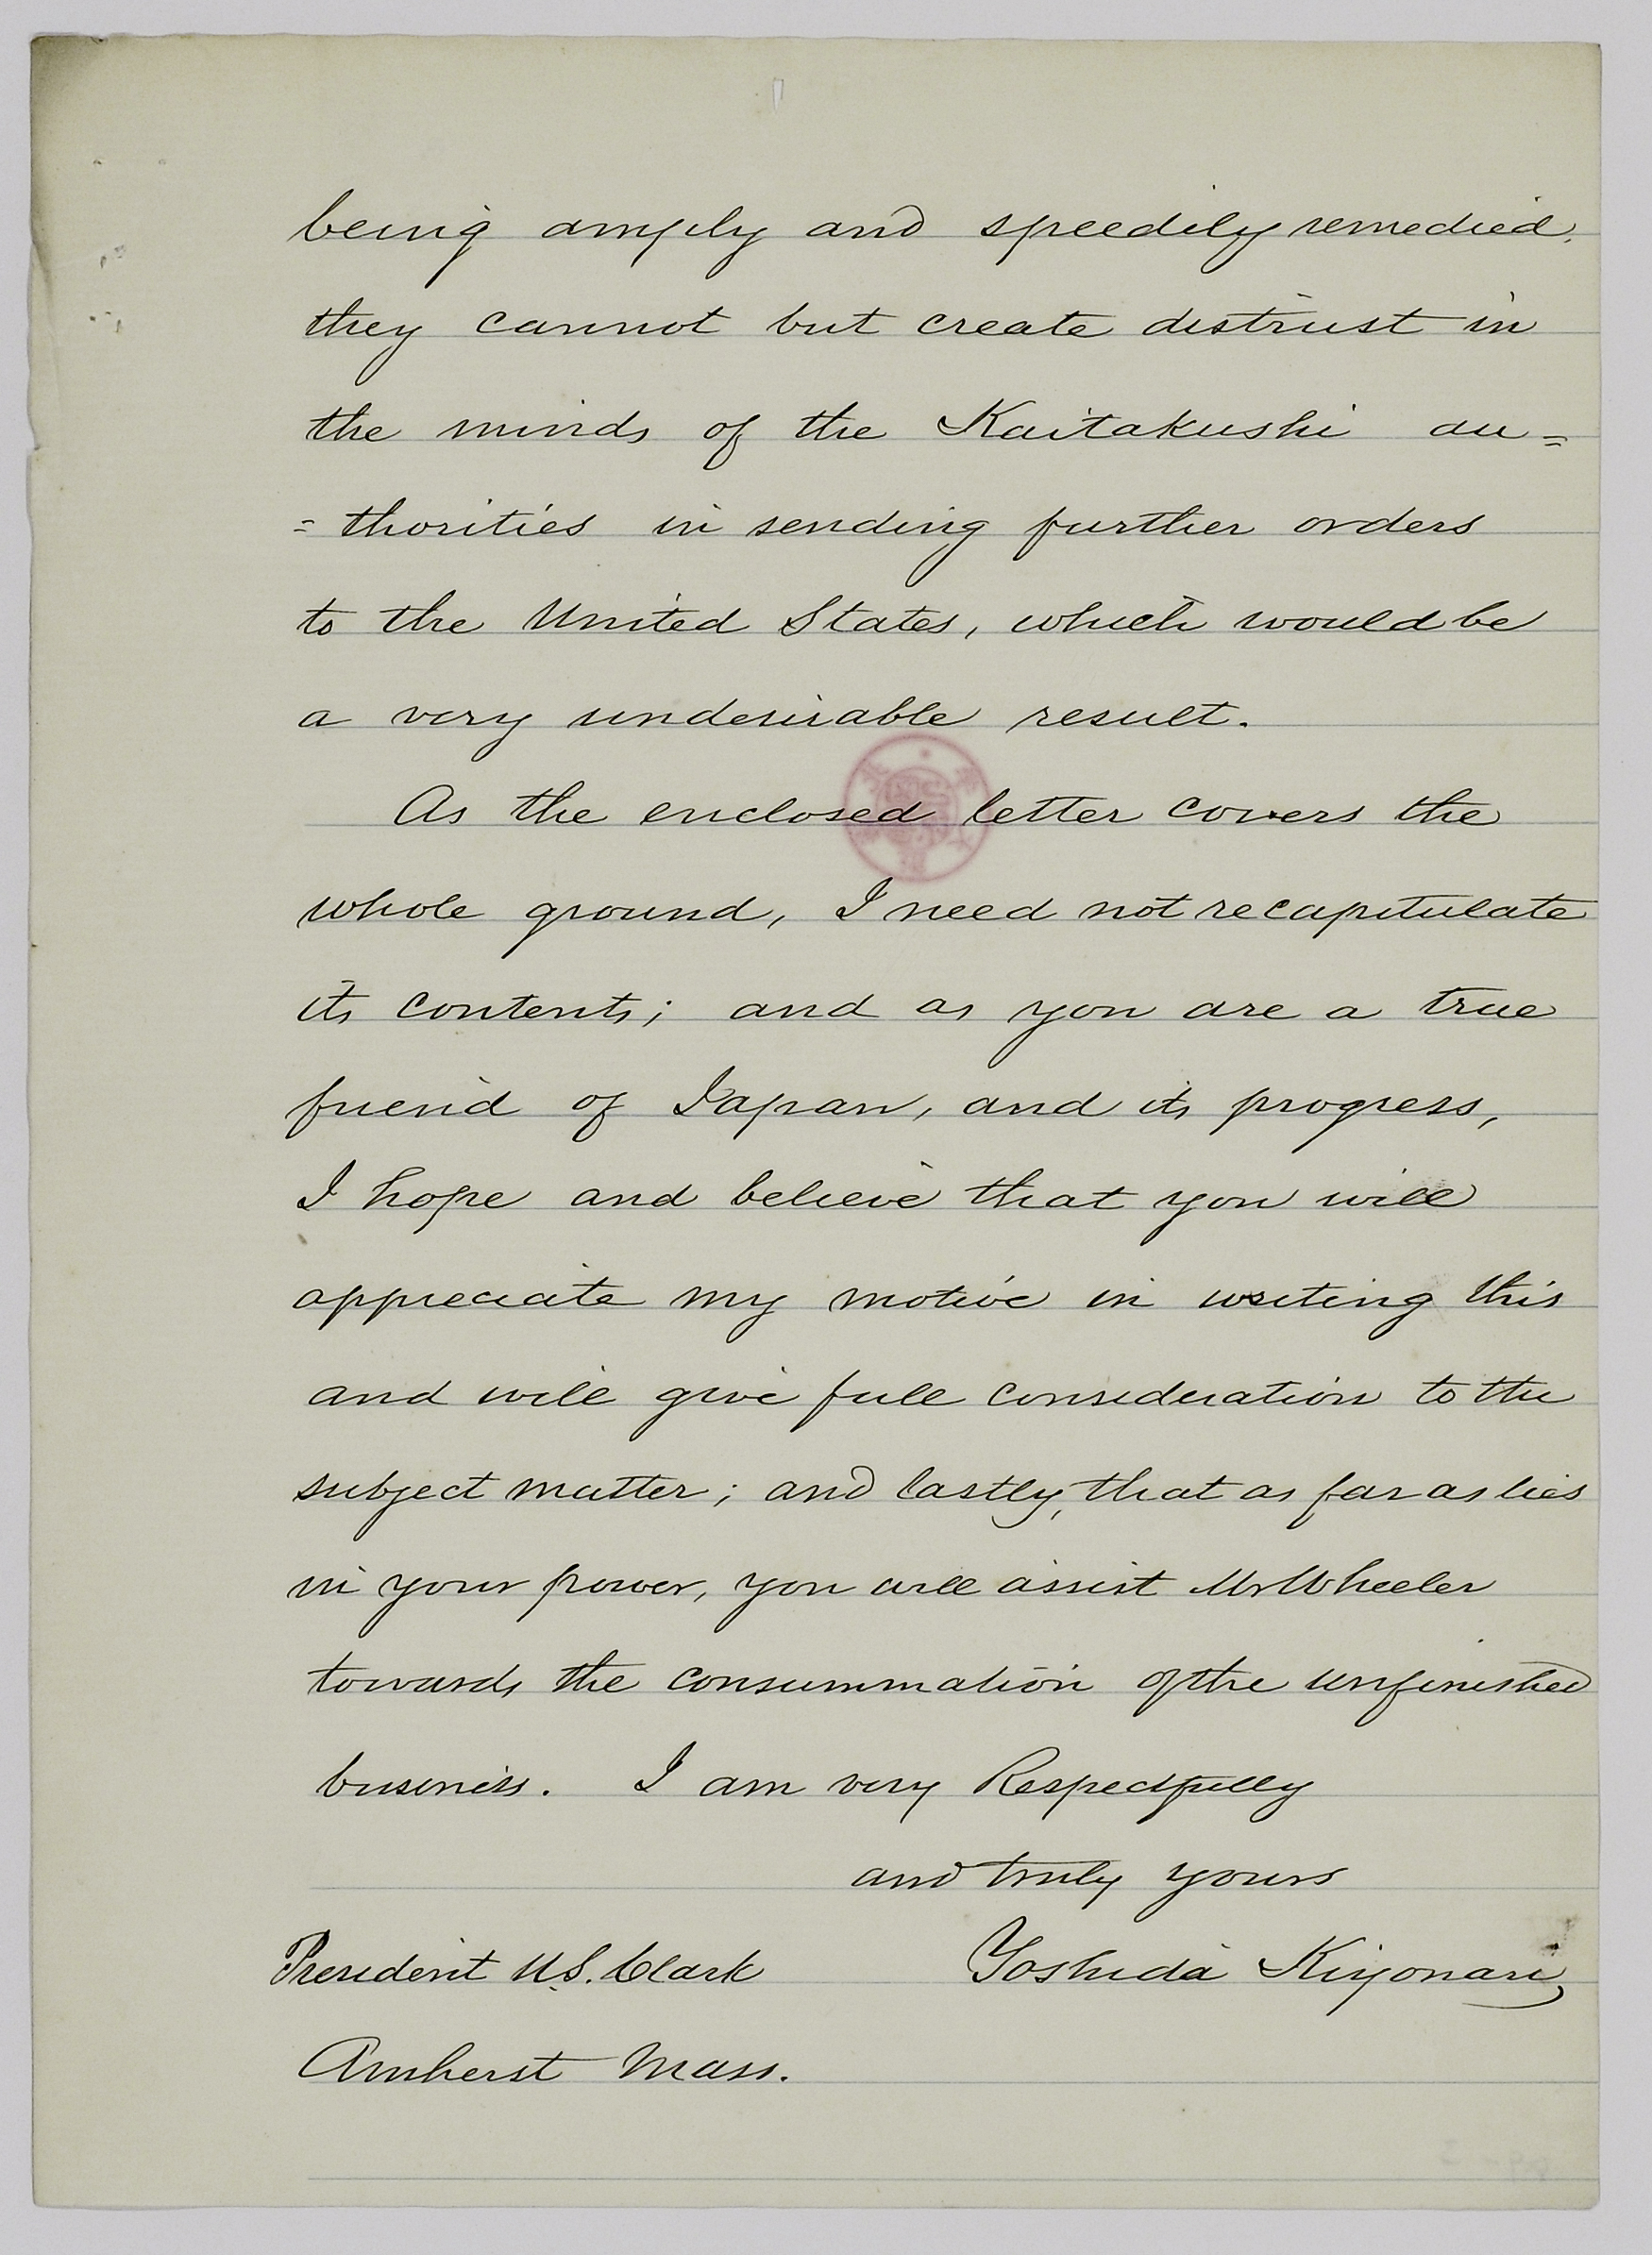 being amply and speedily remedied,
they cannot but create distrust in
the minds of the Kaitakushi au=
=thorities in sending further orders
to the United States, which would be
a very undesirable result.
As the enclosed letter covers the
whole ground, I need not recapitulate
its contents; and as you are a true
friend of Japan, and its progress,
I hope and believe that you will
appreciate my motive in writing this
and will give full consideration to the
subject matter; and lastly, that as far as lies
in your power, you will assist Mr Wheeler
towards the consummation of the unfinished
business. I am very Respectfully
and truly yours
President W.S. Clark Yoshida Kiyonari,
Amherst Mass.